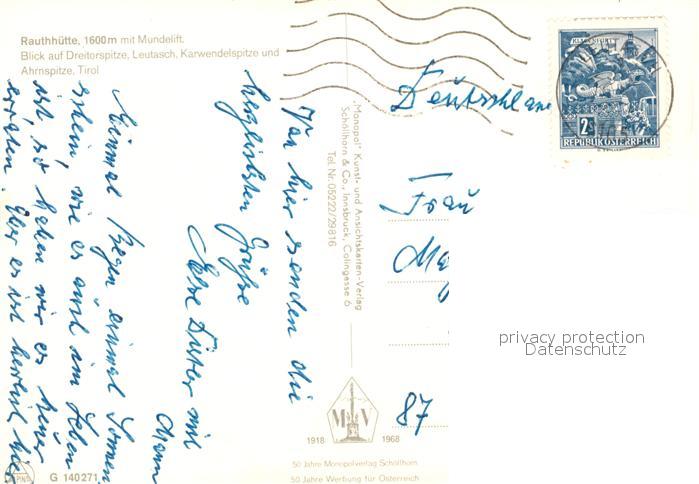 Rauthhütte, 1600m mit Mundelift.
Blick auf Dreitorspitze, Leutasch, Karwendelspitze und
Ahrnspitze, Tirol
Von hier senden die
herzlichsten Grüße
mit
Mann
Einmal Regen einmal Sonnen
schein, wie es auch im Leben
ist, so haben wir es hier
Aber es ist herrlich hier
"Monopol" Kunst- und Ansichtskarten-Verlag
Schöllhorn & Co., Innsbruck, Colingasse 6
Tel. Nr. 05222/29816
Deutschland
Frau
87
KLAGENFURT
2S
REPUBLIK ÖSTERREICH
M V
1918 1968
50 Jahre Monopolverlag Schöllhorn
50 Jahre Werbung für Österreich
G 140271
privacy protection
Datenschutz